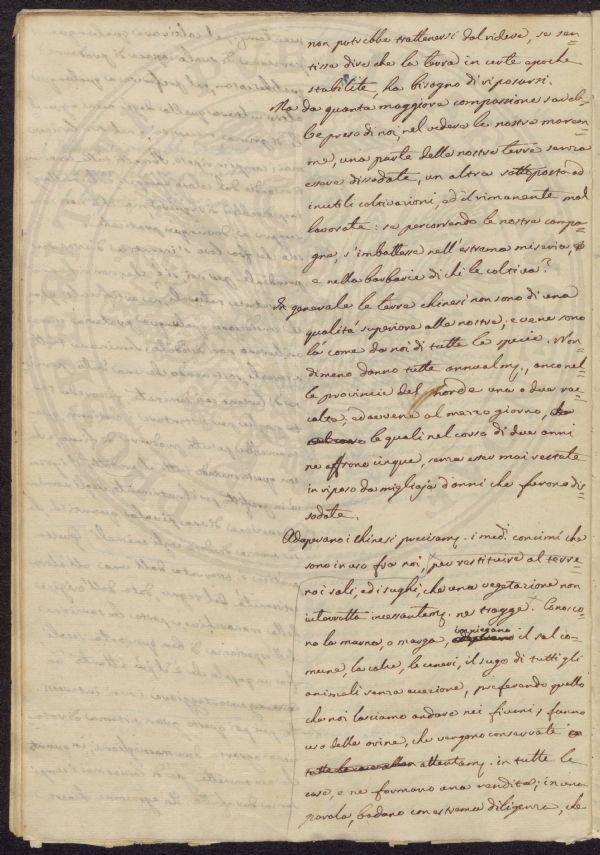 non potrebbe trattenersi dal ridere, se sen=
tisse dire che la terra in certe epoche
stabilite, ha bisogno di riposarsi.
Ma da quanta maggiore compassione sareb=
be preso di noi, nel vedere le nostre marem=
me, una parte delle nostre terre senza
essere dissodate, un altra sottoposta ad
inutili coltivazioni, ed il rimanente mal
lavorate: se percorrendo le nostre campa=
gne s'imbattesse nell'estrema miseria,
e nella barbarie di chi le coltiva?
In generale le terre chinesi non sono di una
qualità superiore alle nostre, e ve ne sono
là come da noi di tutte le specie. Non=
dimeno danno tutte annualm., anco nel=
le provincie del norde una o due rac=
colte, ed avvene al mezzo giorno,
le quali nel corso di due anni
ne offrono cinque, senza esser mai restate
in riposo da migliaja d'anni che furono dis=
sodate.
Adoperano i chinesi precisam. i med. concimi che
sono in uso fra noi, per restituire al terre=
no i sali, ed i sughi, che una vegetazione non
interrotta incessantem. ne tragge. Conosco=
no la marna, o marga, impiegano il sal co=
mune, la calce, le ceneri, il sugo di tutti gli
animali senza eccezione, preferendo quello
che noi lasciamo andare nei fiumi, fanno
uso delle orine, che vengono conservate
attentam. in tutte le
case, e ne formano una rendita; in una
parola, badano con estrema diligenza, che